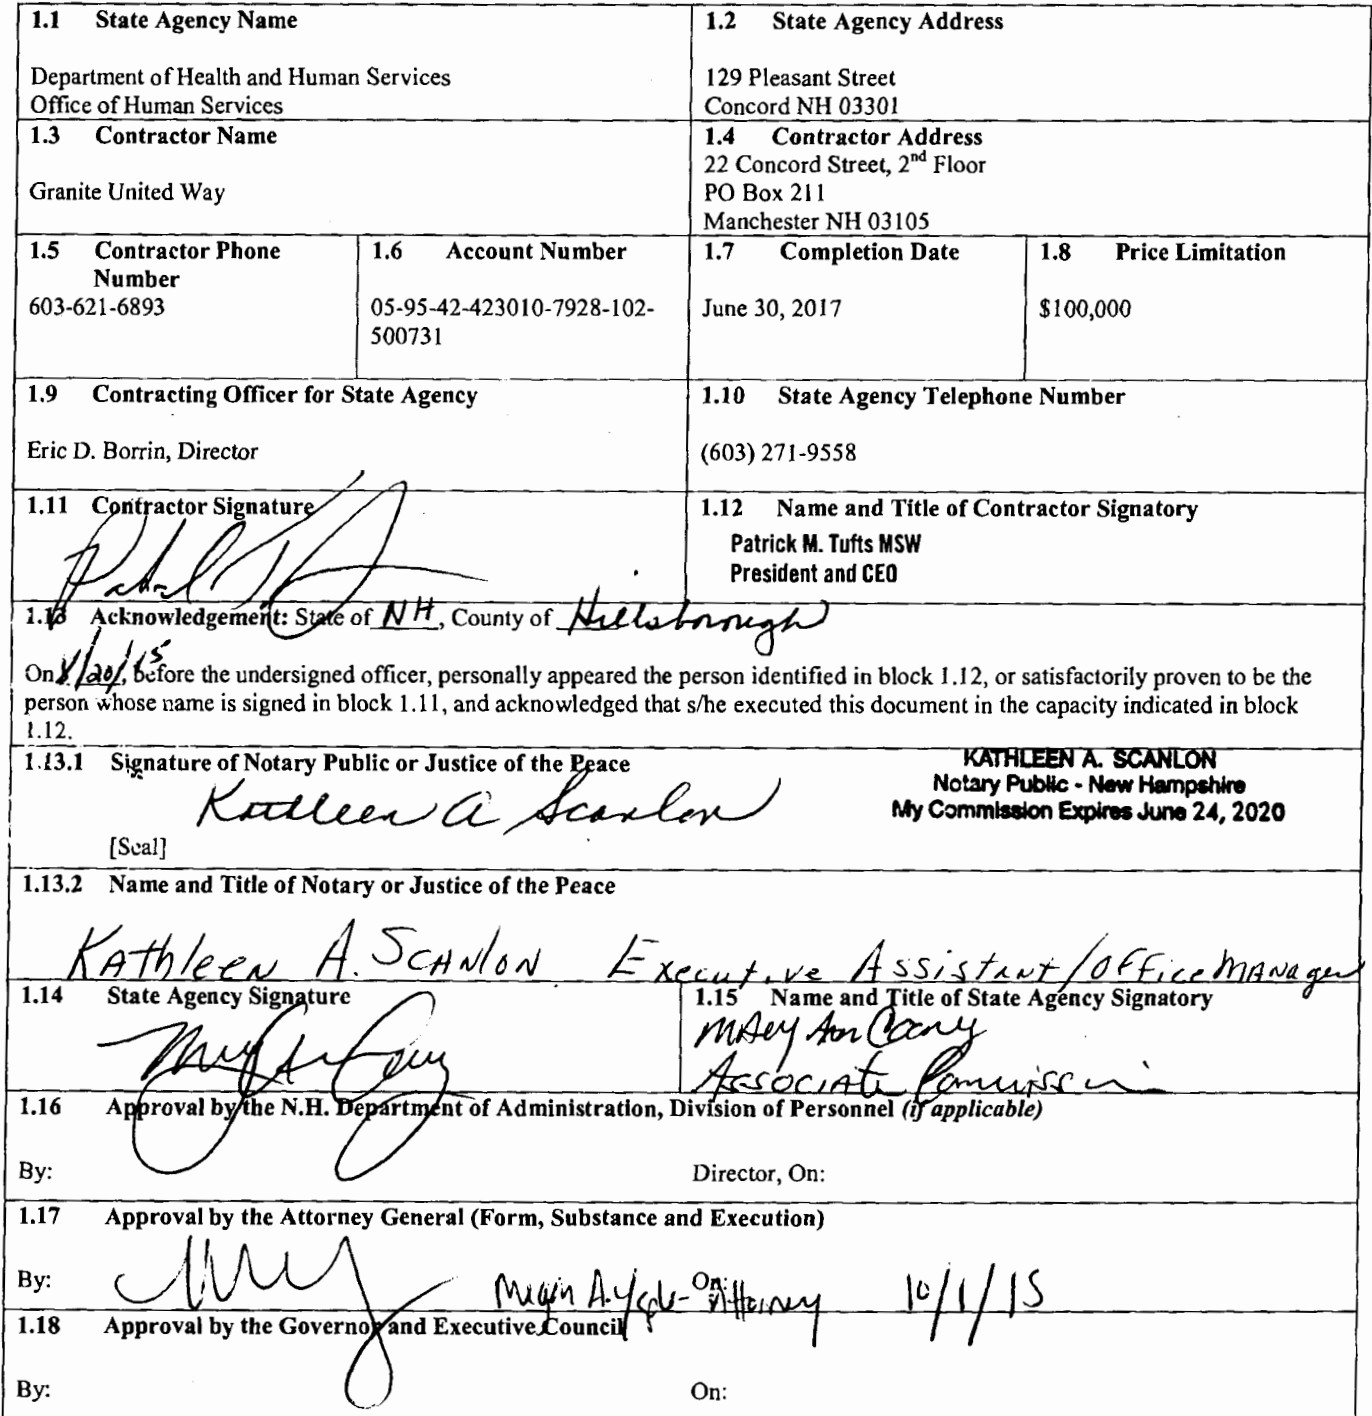 1.1 State Agency Name
Department of Health and Human Services
Office of Human Services
1.2 State Agency Address
129 Pleasant Street
Concord NH 03301
1.3 Contractor Name
Granite United Way
1.4 Contractor Address
22 Concord Street, 2nd Floor
PO Box 211
Manchester NH 03105
1.5 Contractor Phone
Number
603-621-6893
1.6 Account Number
05-95-42-423010-7928-102-
500731
1.7 Completion Date
June 30, 2017
1.8 Price Limitation
$100,000
1.9 Contracting Officer for State Agency
Eric D. Borrin, Director
1.10 State Agency Telephone Number
(603) 271-9558
1.11 Contractor Signature
1.12 Name and Title of Contractor Signatory
Patrick M. Tufts MSW
President and CEO
1.13 Acknowledgement: State of NH, County of Hillsborough
On 8/20/15, before the undersigned officer, personally appeared the person identified in block 1.12, or satisfactorily proven to be the
person whose name is signed in block 1.11, and acknowledged that s/he executed this document in the capacity indicated in block
1.12.
1.13.1 Signature of Notary Public or Justice of the Peace
Kathleen A Scanlon
[Seal]
KATHLEEN A. SCANLON
Notary Public - New Hampshire
My Commission Expires June 24, 2020
1.13.2 Name and Title of Notary or Justice of the Peace
Kathleen A. Scanlon Executive Assistant/Office Manager
1.14 State Agency Signature
1.15 Name and Title of State Agency Signatory
Mary Ann Cooney
Associate Commissioner
1.16 Approval by the N.H. Department of Administration, Division of Personnel (if applicable)
By:
Director, On:
1.17 Approval by the Attorney General (Form, Substance and Execution)
By:
Megan A. - Attorney
On: 10/1/15
1.18 Approval by the Governor and Executive Council
By:
On: